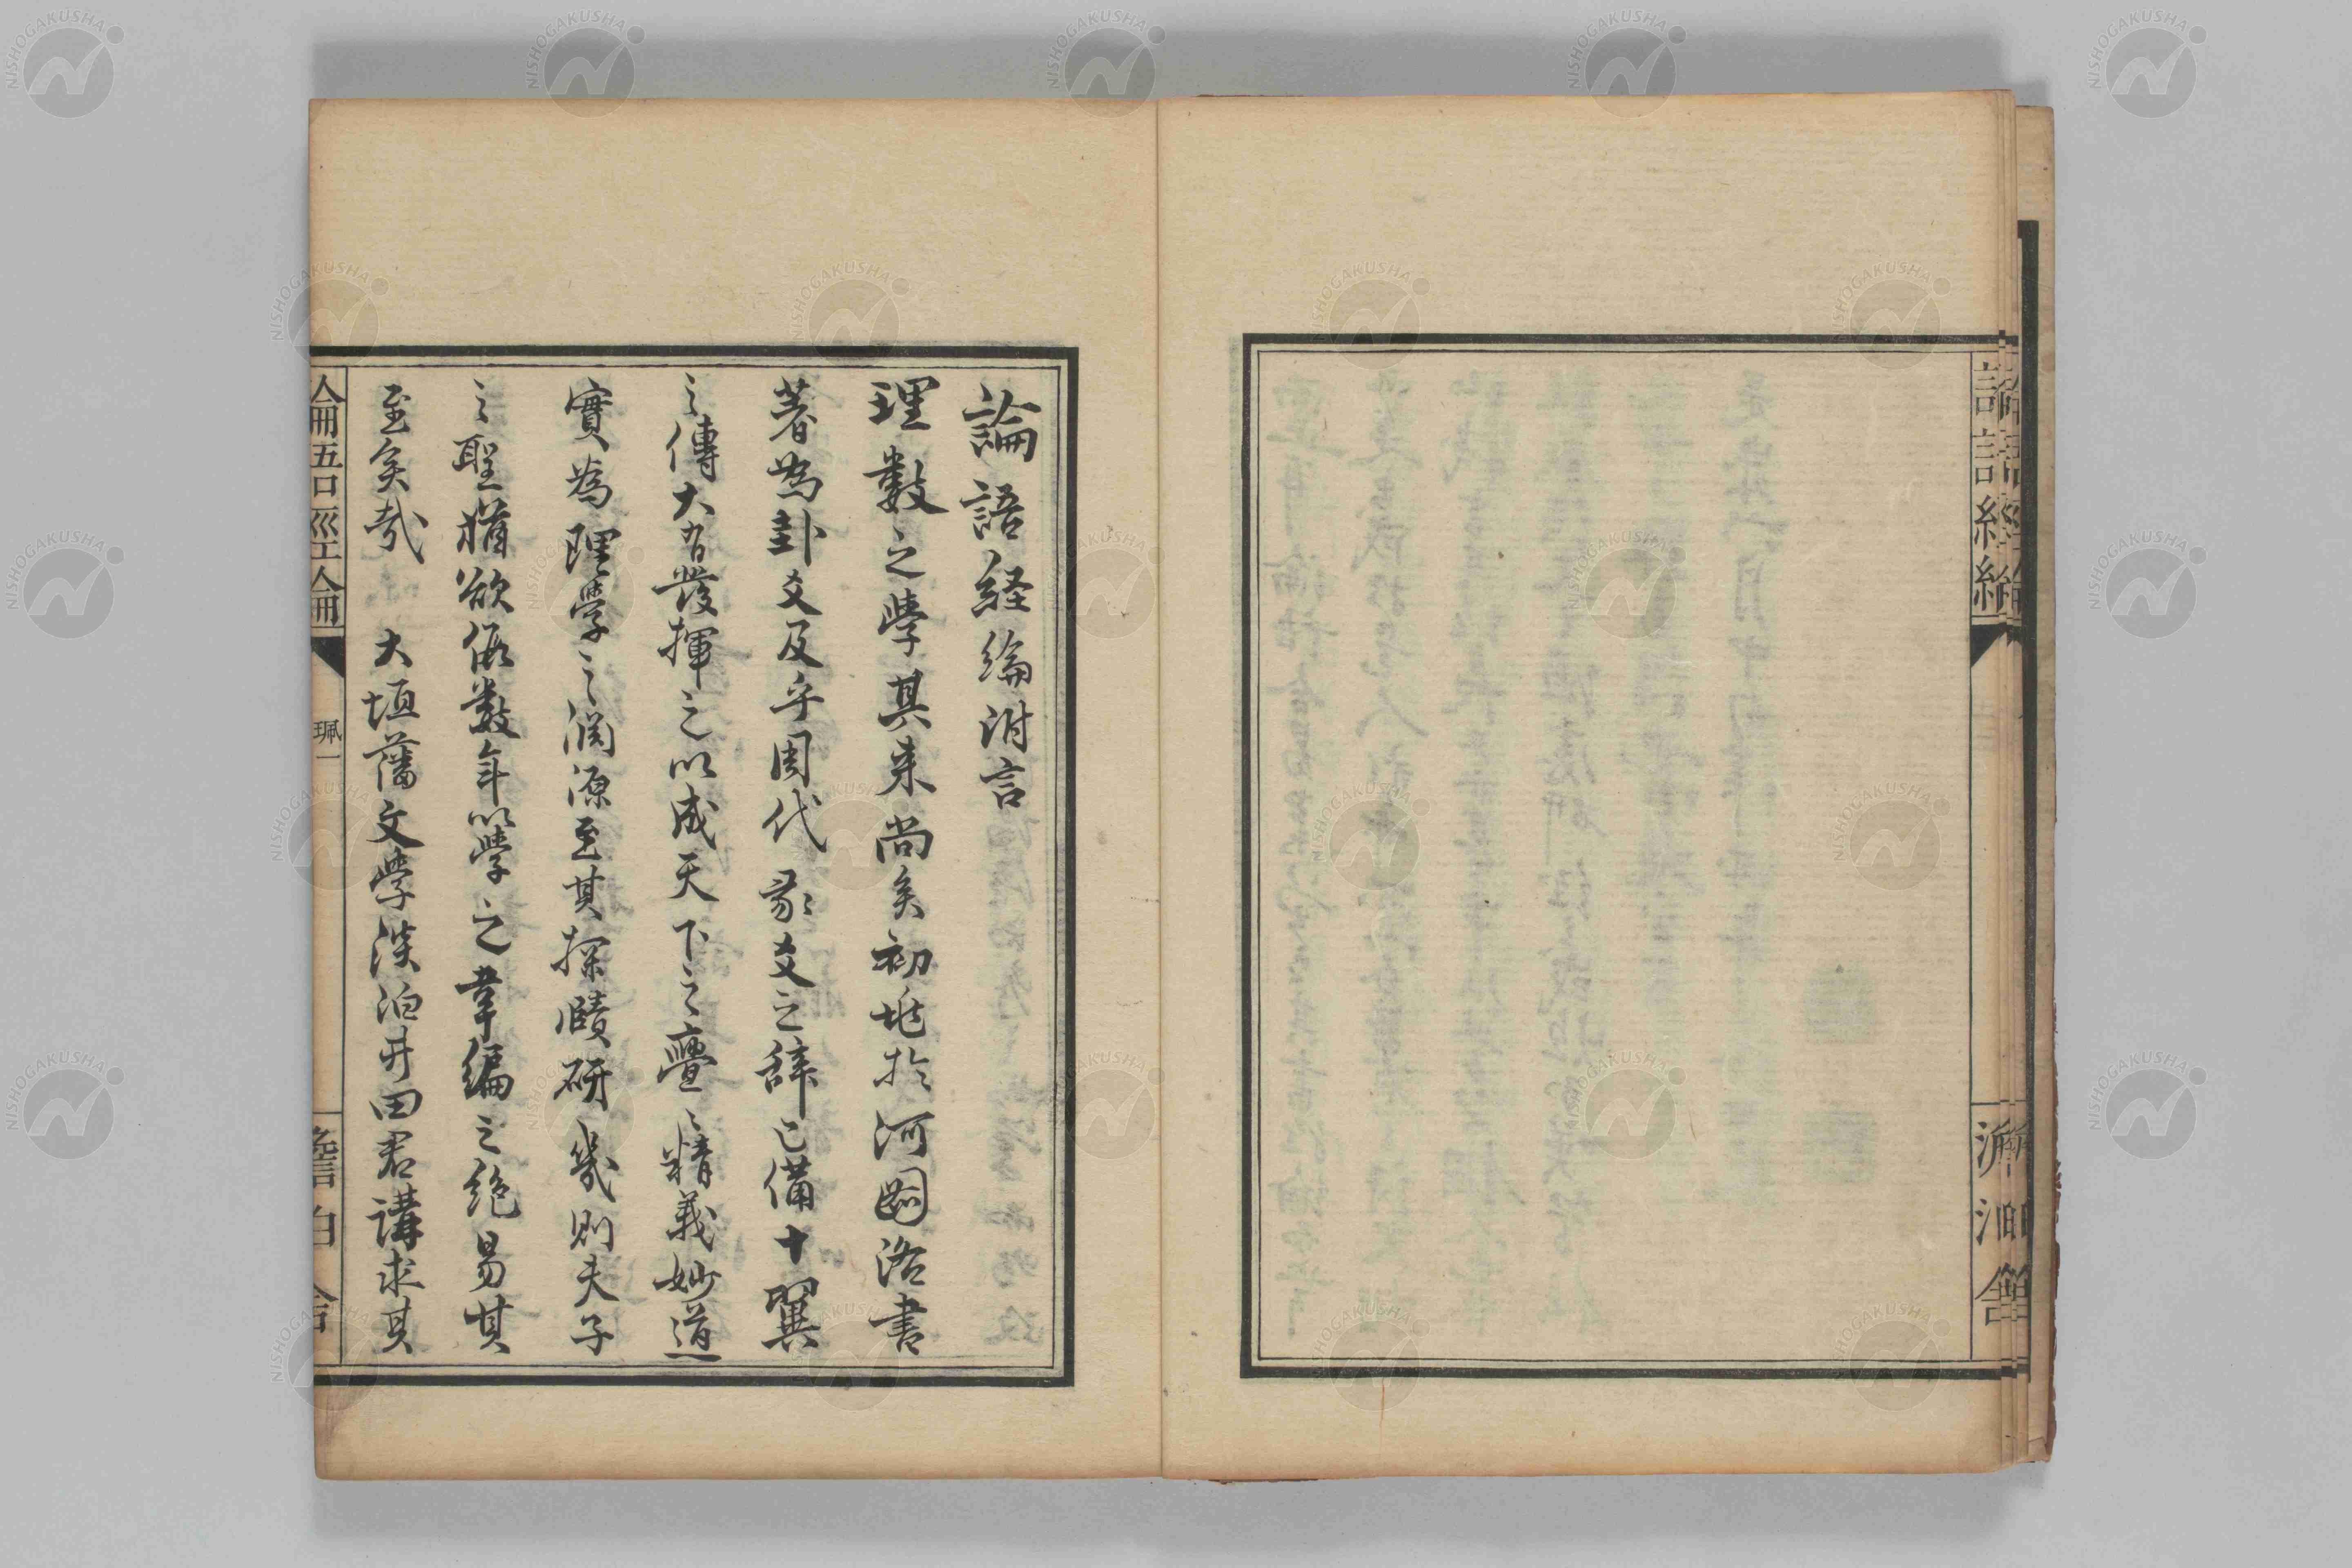 論語經綸
澹泊舍
論語経綸附言
理數之學其来尚矣初兆於河圖洛書
著為卦爻及乎周代彖爻之辞已備十翼
之傳大有發揮之以成天下之亹〻精義妙道
實為理學之淵源至其探賾研幾則夫子
之聖猶欲假数年以學之韋編之絶易其
至矣哉 大垣藩文學淡泊井田君講求其
論語經綸
珮一
澹泊舍
NISHOGAKUSHA